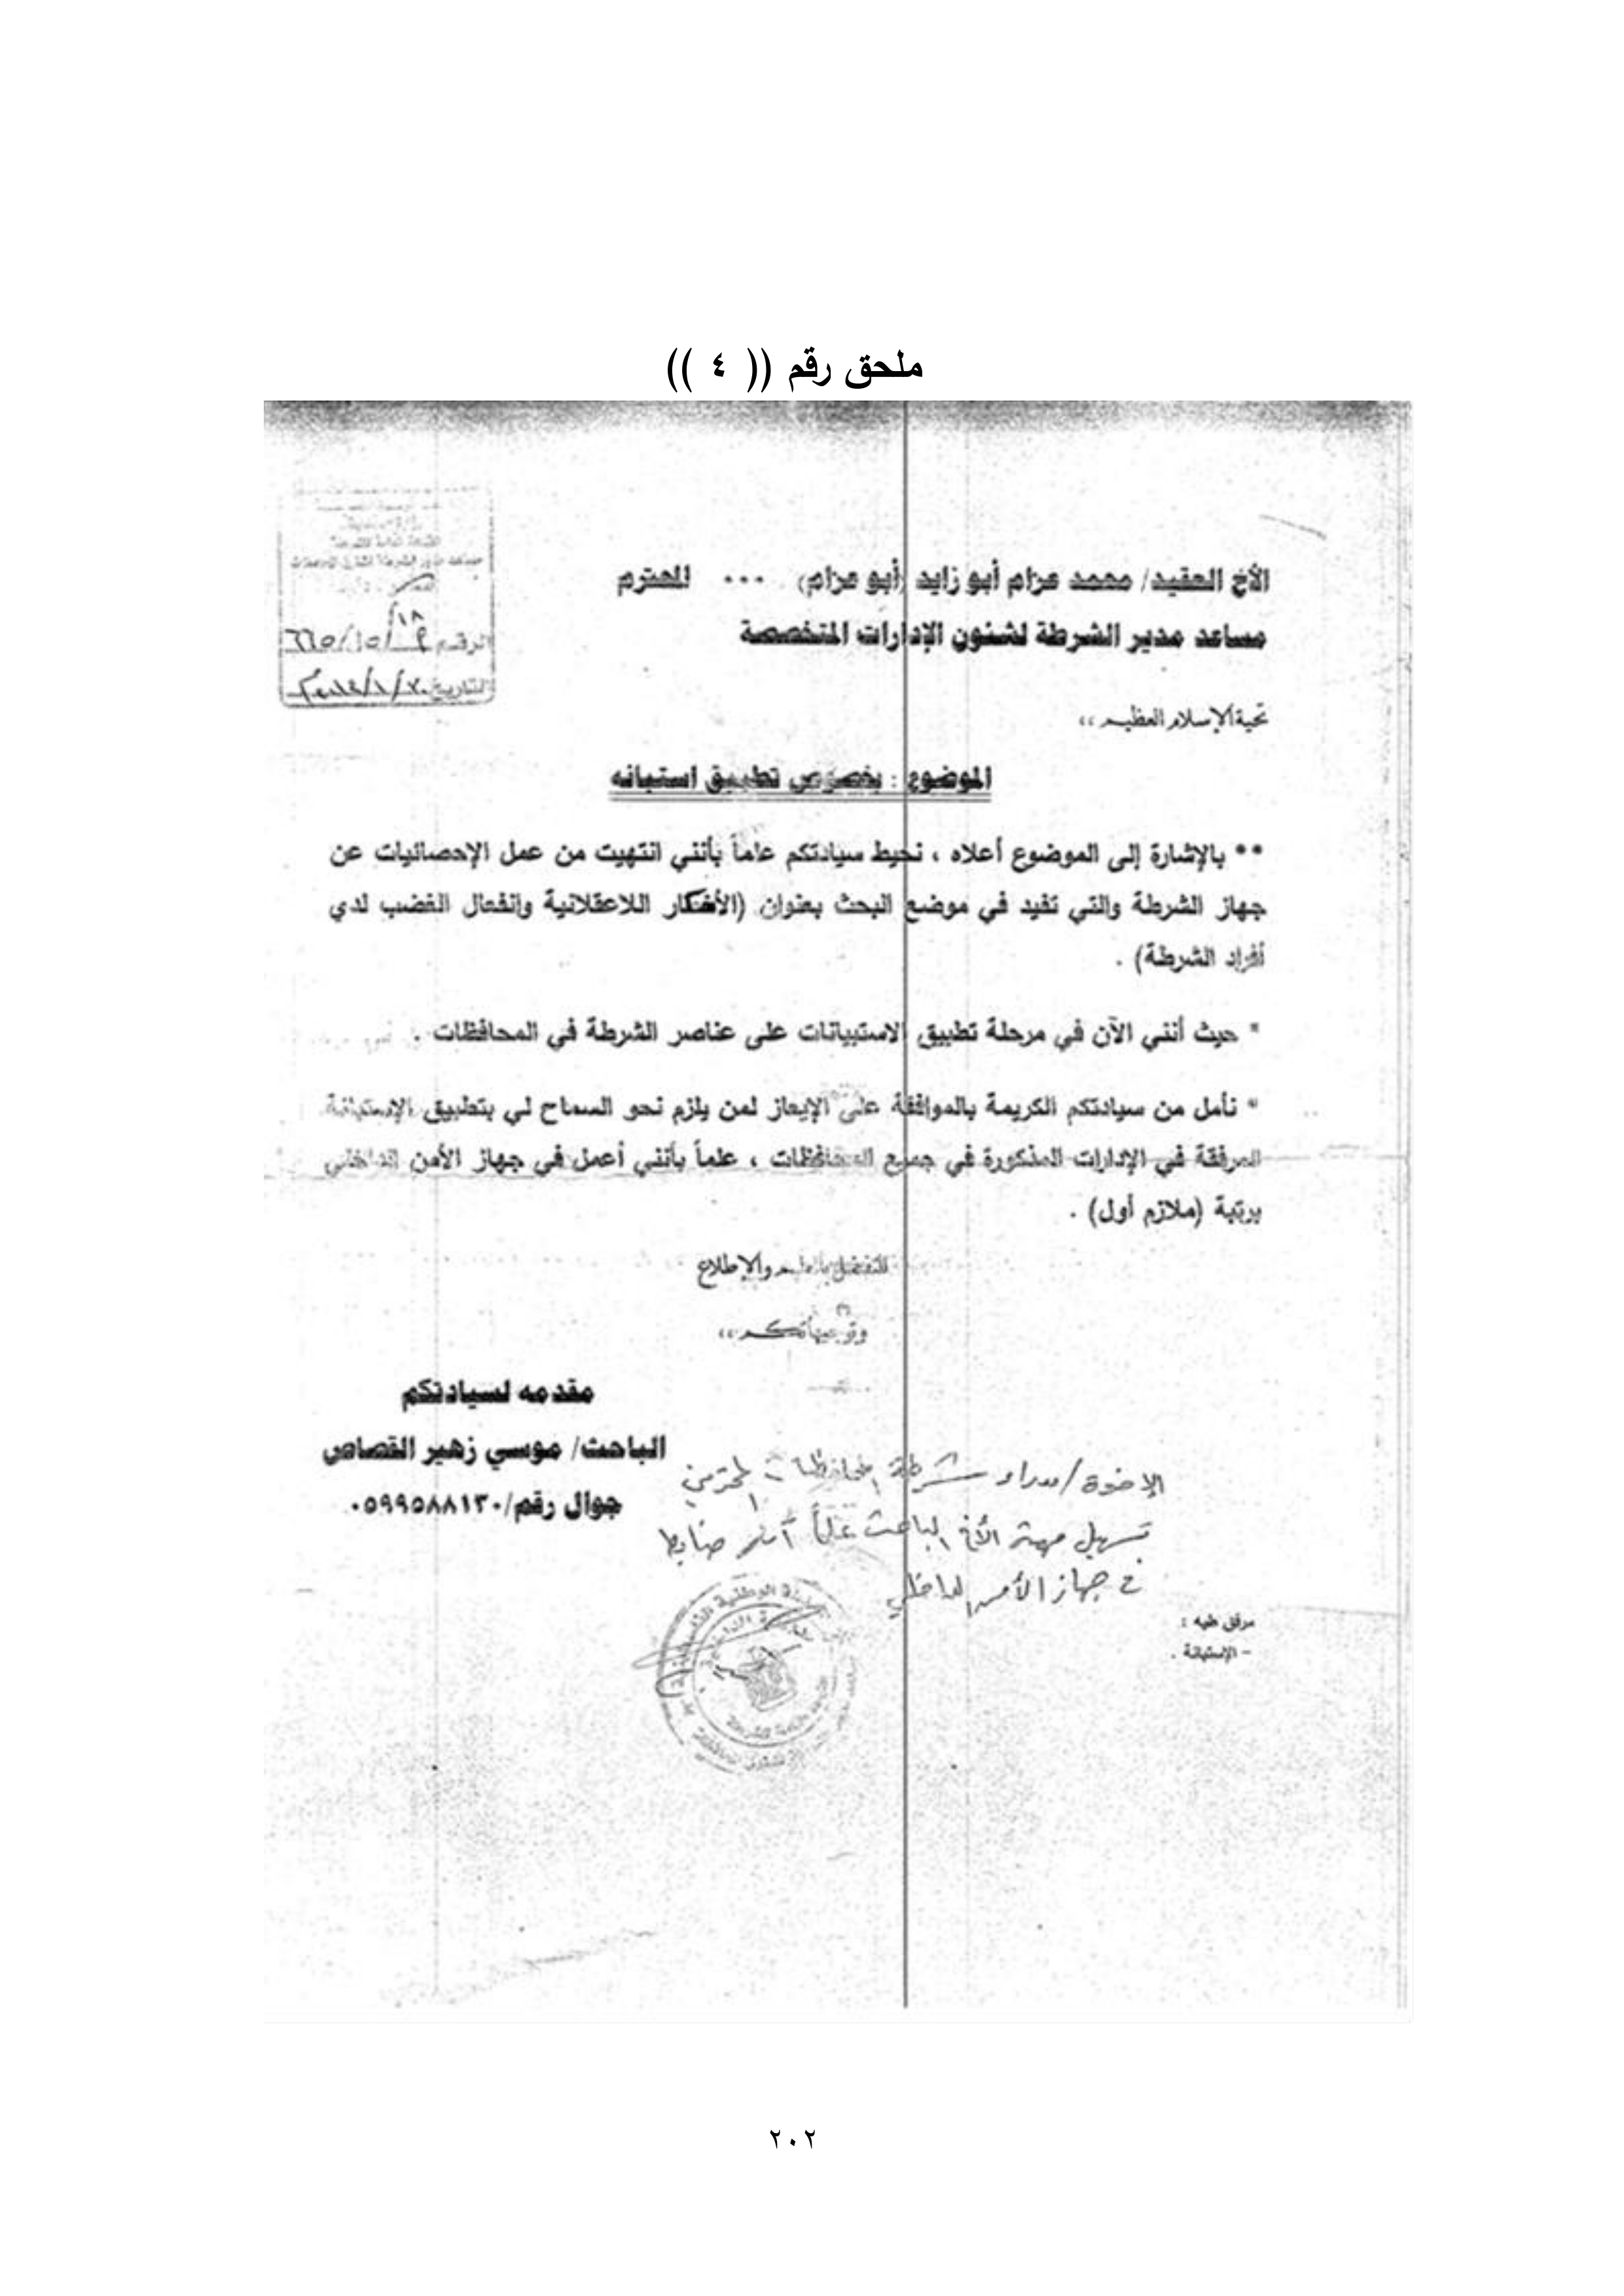 ملحق رقم (( ٤ ))
الأخ العقيد/ محمد عزام أبو زايد (أبو عزام) ... المحترم
مساعد مدير الشرطة لشئون الإدارات المتخصصة
الرقم
التاريخ
تحية الإسلام العظيم ،،
الموضوع : بخصوص تطبيق استبانه
** بالإشارة إلى الموضوع أعلاه ، نحيط سيادتكم عاماً بأنني انتهيت من عمل الإحصائيات عن
جهاز الشرطة والتي تفيد في موضع البحث بعنوان (الأفكار اللاعقلانية وانفعال الغضب لدي
أفراد الشرطة) .
* حيث أنني الآن في مرحلة تطبيق الاستبيانات على عناصر الشرطة في المحافظات .
* نأمل من سيادتكم الكريمة بالموافقة على الإيعاز لمن يلزم نحو السماح لي بتطبيق الإستبانة
المرفقة في الإدارات المذكورة في جميع المحافظات ، علماً بأنني أعمل في جهاز الأمن الداخلي
برتبة (ملازم أول) .
للتفضل والإطلاع
وتوجيهاتكم ،،
مقدمه لسيادتكم
الباحث/ موسي زهير القصاص
جوال رقم/٠٥٩٩٥٨٨١٣٠
الإخوة/ مدراء شرطة المحافظات المحترمين
تسهيل مهمة الأخ الباحث علماً أنه ضابط
في جهاز الأمن الداخلي
مرفق طيه :
- الإستبانة .
٢٠٢